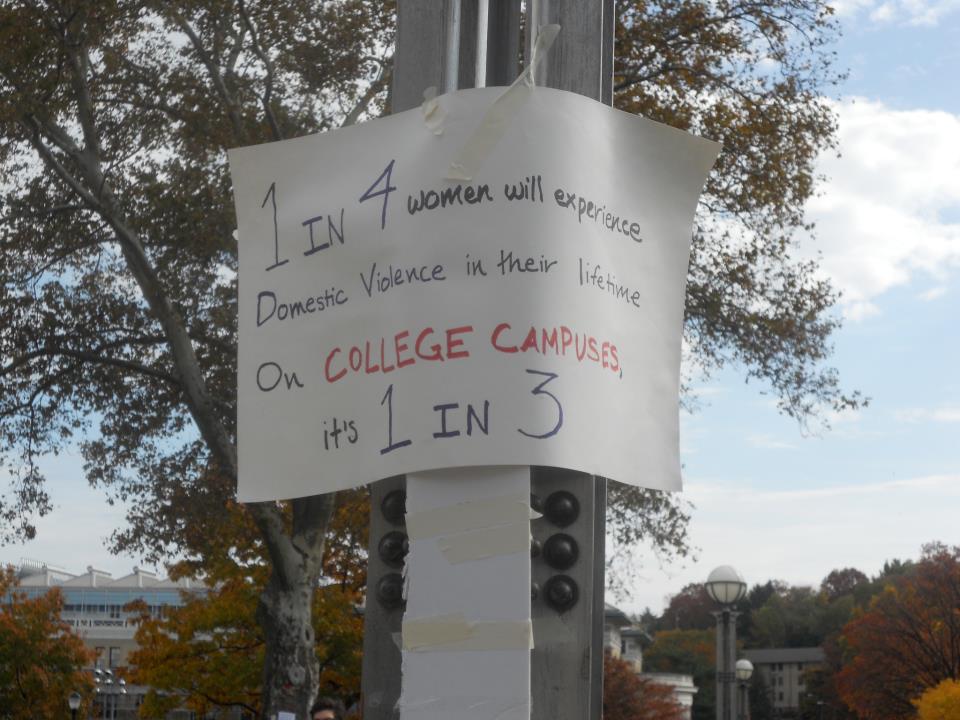 1 IN 4 women will experience
Domestic Violence in their lifetime
On COLLEGE CAMPUSES,
it's 1 IN 3